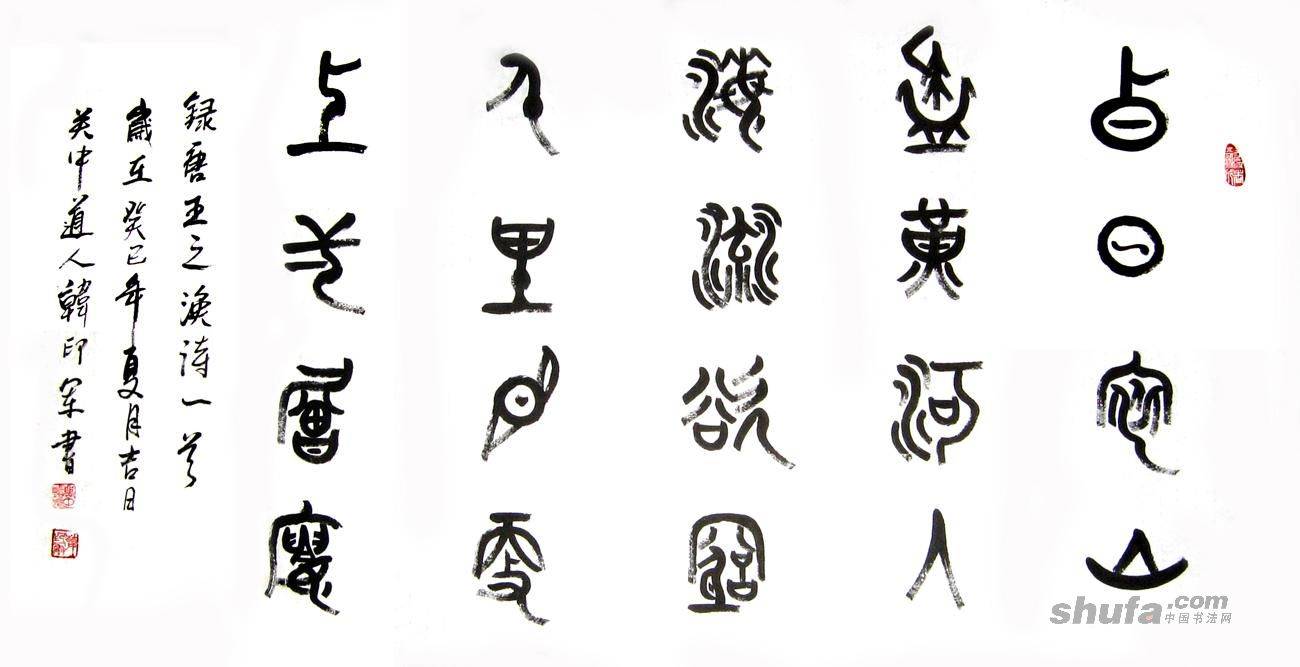 白日依山
盡黄河入
海流欲窮
千里目更
上一層樓
録唐王之渙詩一首
歲在癸巳年夏月吉日
关中道人韓印军書
shufa.com
中国书法网